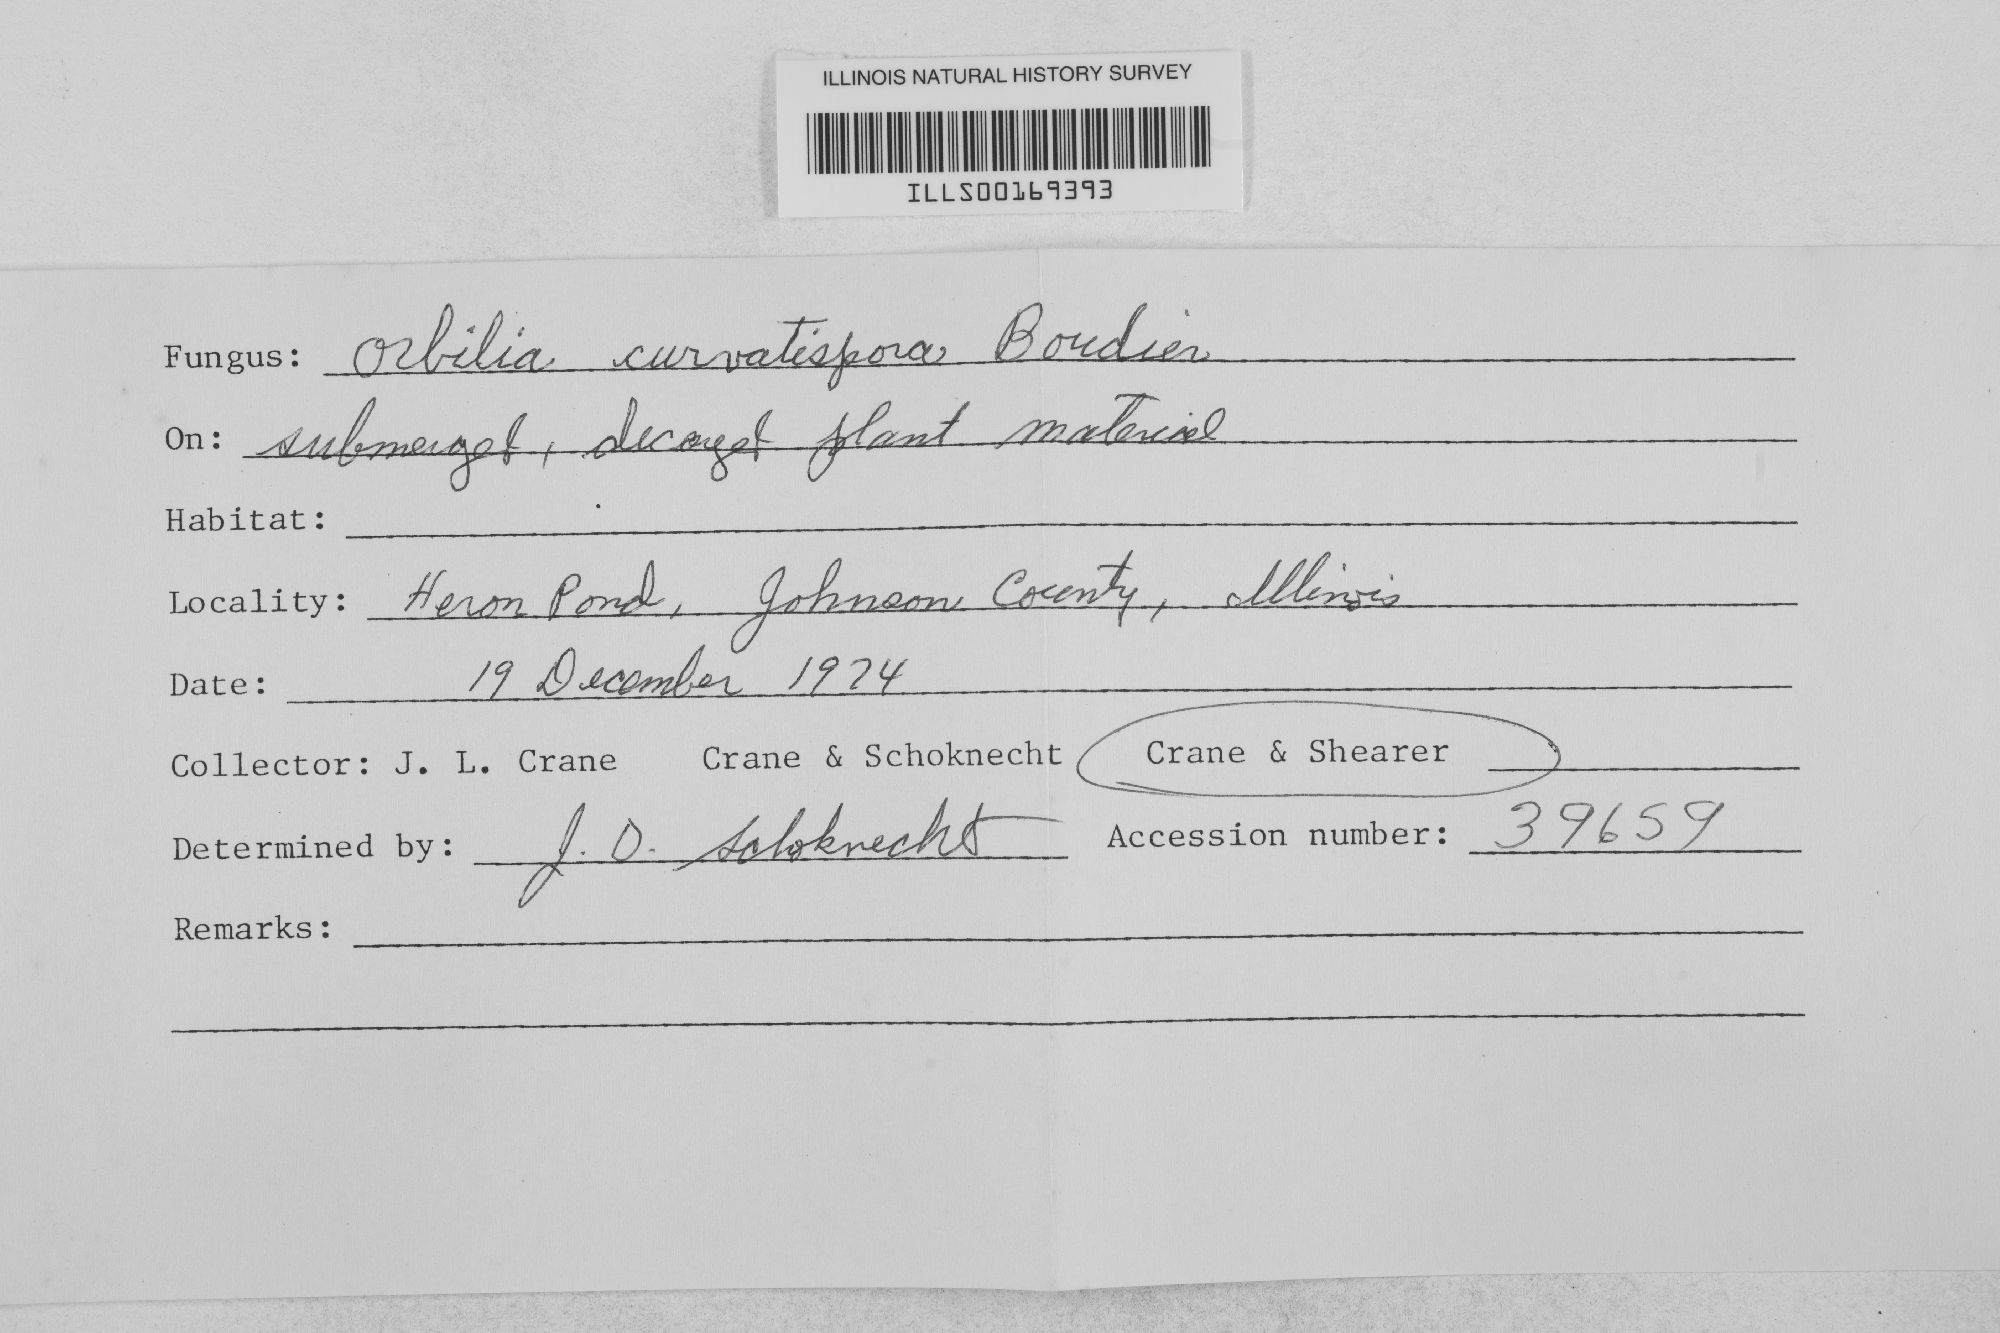 ILLINOIS NATURAL HISTORY SURVEY
ILLS00169393
Fungus: Orbilia curvatispora Boudier
On: submerged, decayed plant material
Habitat:
Locality: Heron Pond, Johnson County, Illinois
Date: 19 December 1974
Collector: J. L. Crane Crane & Schoknecht Crane & Shearer
Determined by: J. D. Schoknecht Accession number: 39659
Remarks: